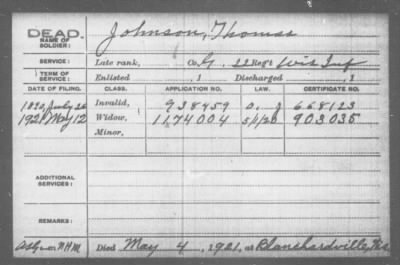 DEAD. Johnson, Thomas
NAME OF SOLDIER:
SERVICE: Late rank, Co. G. 22 Reg't Wis Inf
TERM OF SERVICE: Enlisted , 1 Discharged , 1
DATE OF FILING. CLASS. APPLICATION NO. LAW. CERTIFICATE NO.
1890 July 26 Invalid, 938459 668123
1921 May 12 Widow, 1174004 5/1/20 903035
Minor,
ADDITIONAL SERVICES:
REMARKS:
Died May 4, 1921, at Blanchardville, Wis